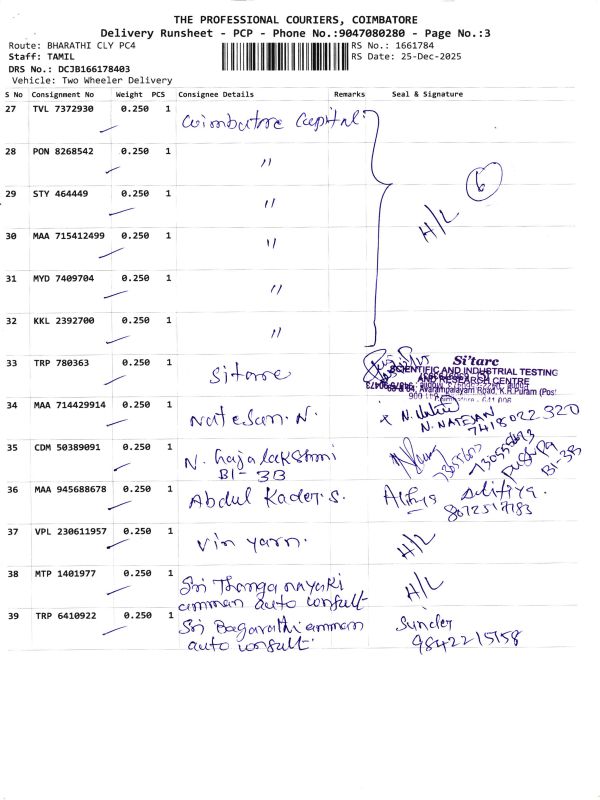 THE PROFESSIONAL COURIERS, COIMBATORE
Delivery Runsheet - PCP - Phone No.:9047080280 - Page No.:3
Route: BHARATHI CLY PC4 RS No.: 1661784
Staff: TAMIL RS Date: 25-Dec-2025
DRS No.: DCJB166178403
Vehicle: Two Wheeler Delivery
S No Consignment No Weight PCS Consignee Details Remarks Seal & Signature
27 TVL 7372930 0.250 1 Coimbatore Capital
28 PON 8268542 0.250 1 〃 6
29 STY 464449 0.250 1 〃 H/L
30 MAA 715412499 0.250 1 〃
31 MYD 7409704 0.250 1 〃
32 KKL 2392700 0.250 1 〃
33 TRP 780363 0.250 1 Sitarc
Si'tarc
SCIENTIFIC AND INDUSTRIAL TESTING
AND RESEARCH CENTRE
Avarampalayam Road, K.R.Puram (Post
34 MAA 714429914 0.250 1 Natesan. N. N. NATESAN
7418022320
35 CDM 50389091 0.250 1 N. Gajalakshmi
B1 - 3B Pushpa B1-3B
36 MAA 945688678 0.250 1 Abdul Kader. S.
8072517783
37 VPL 230611957 0.250 1 Vin yarn. H/L
38 MTP 1401977 0.250 1 Sri Thanganayaki
amman auto consult H/L
39 TRP 6410922 0.250 1 Sri Bagavathi amman
auto consult. Sunder
9842215158